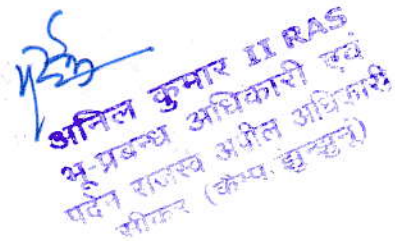 अनिल कुमार II RAS
भू-प्रबन्ध अधिकारी एवं
पदेन राजस्व अपील अधिकारी
सीकर (कैम्प, झुन्झुनूं)